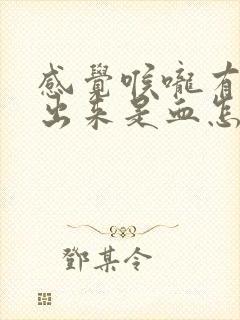 感覺喉嚨有
出来是血怎
鄧某令